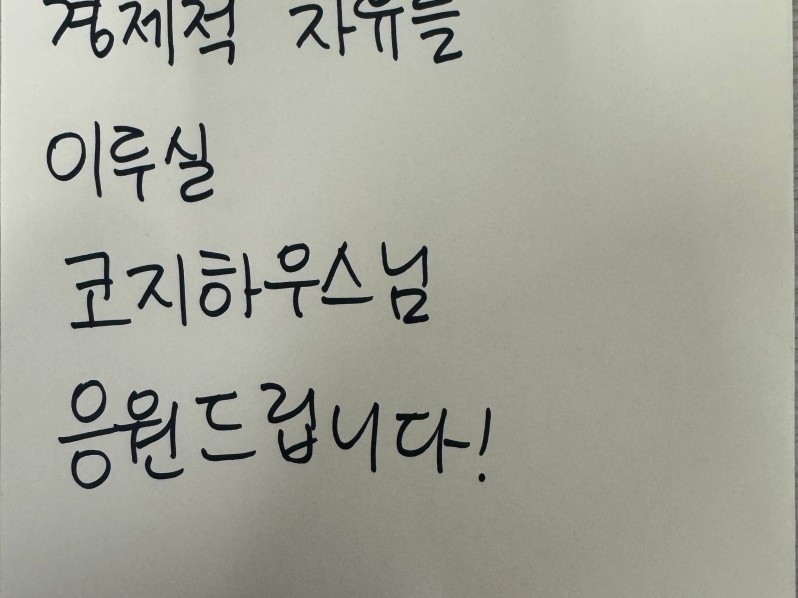 경제적 자유를
이루실
코지하우스님
응원드립니다!